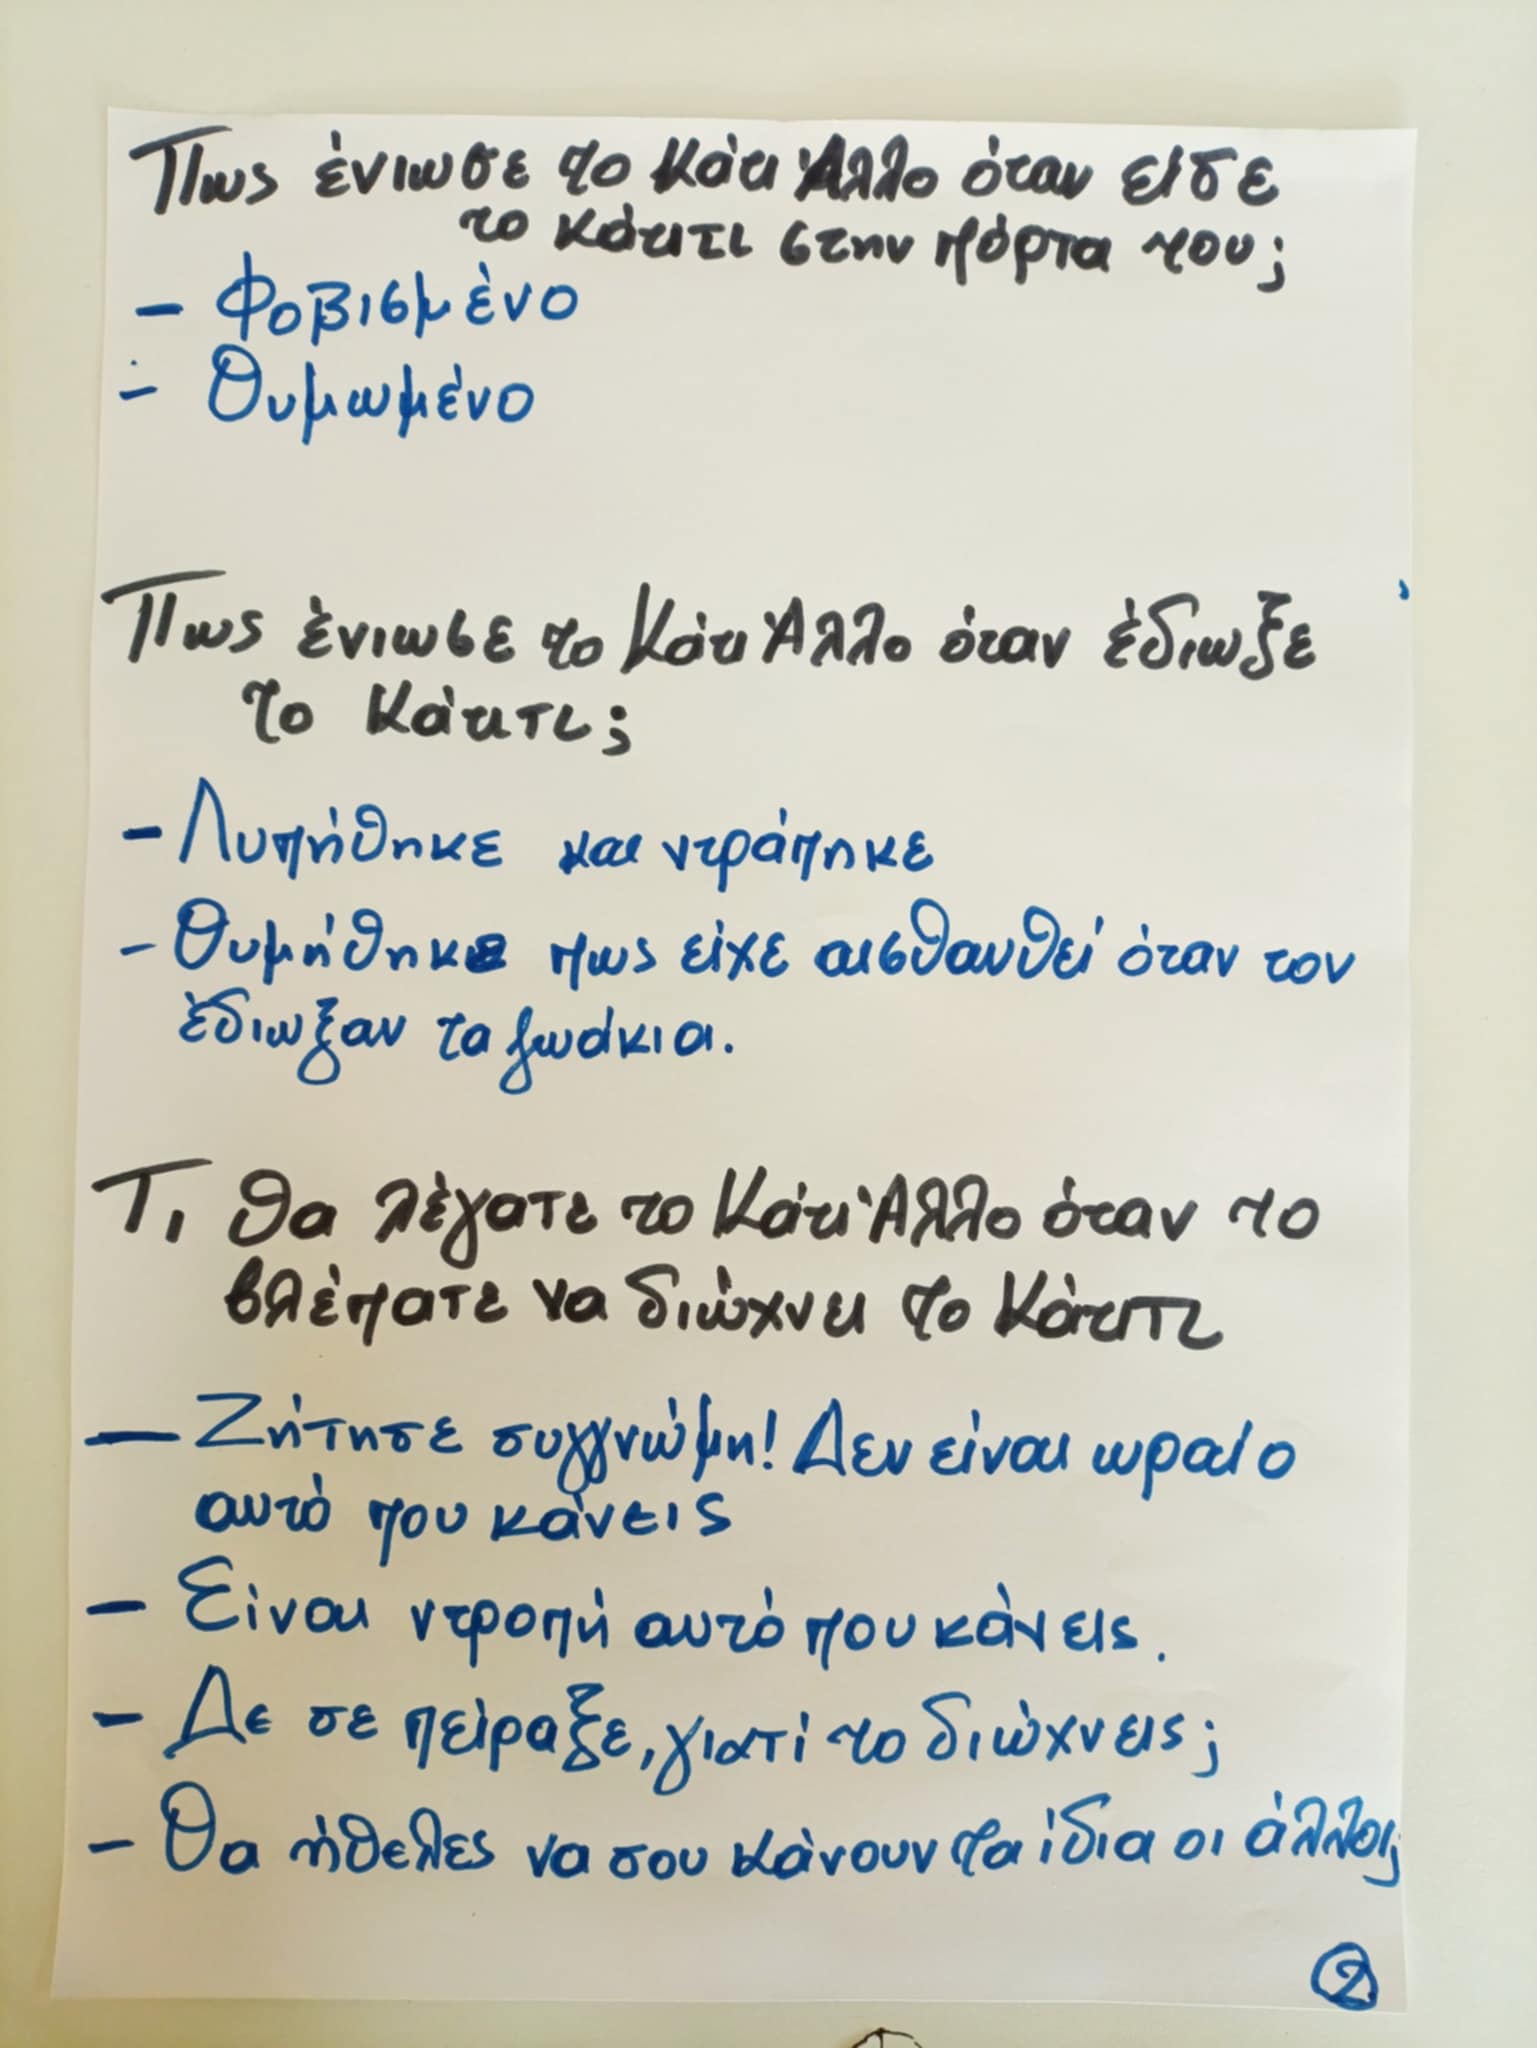 Πως ένιωσε το Κάτι Άλλο όταν είδε
το κάτιτι στην πόρτα του;
- Φοβισμένο
- Θυμωμένο
Πως ένιωσε το Κάτι Άλλο όταν έδιωξε
το Κάτιτι;
- Λυπήθηκε και ντράπηκε
- Θυμήθηκε πως είχε αισθανθεί όταν τον
έδιωξαν τα ζωάκια.
Τι θα λέγατε το Κάτι Άλλο όταν το
βλέπατε να διώχνει το Κάτιτι
- Ζήτησε συγγνώμη! Δεν είναι ωραίο
αυτό που κάνεις
- Είναι ντροπή αυτό που κάνεις.
- Δε σε πείραξε, γιατί το διώχνεις;
- Θα ήθελες να σου κάνουν τα ίδια οι άλλοι;
2